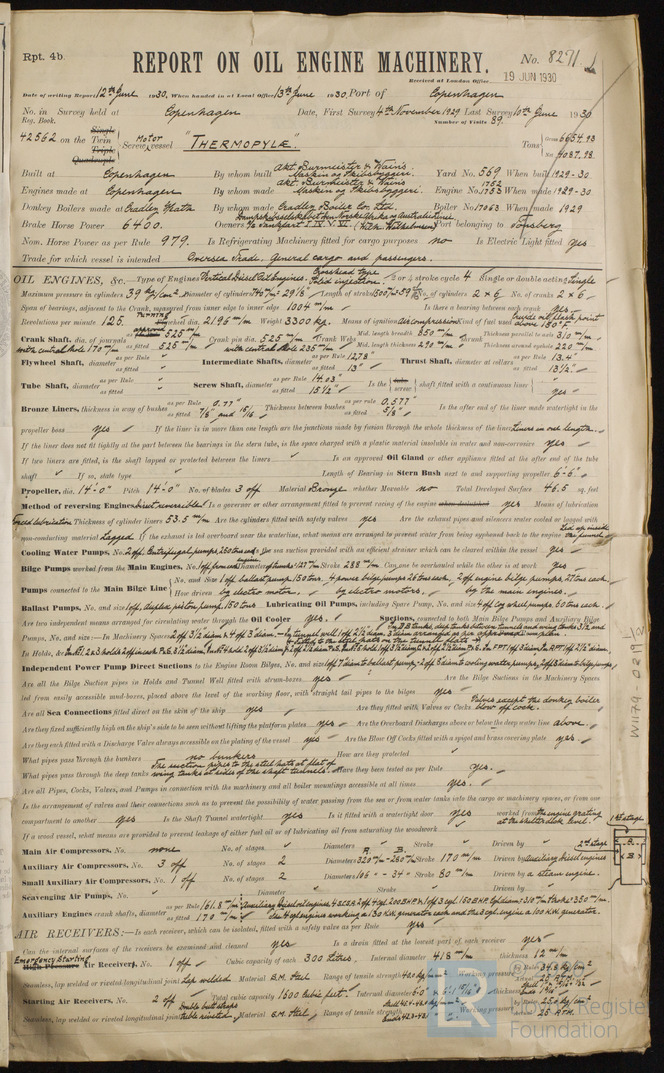 Rpt. 4b.
REPORT ON OIL ENGINE MACHINERY.
No. 8271
Received at London Office 19 JUN 1930
Date of writing Report 12th June 1930. When handed in at Local Office 13th June 1930. Port of Copenhagen
No. in Survey held at Copenhagen Date, First Survey 4th November 1929 Last Survey 10th June 1930
Reg. Book. Number of Visits 89.
42562 on the Single Twin Triple Quadruple Screw Motor vessel "THERMOPYLÆ" Tons Gross 6654.93 Net 4087.98
Built at Copenhagen By whom built Akt. Burmeister & Wain's Maskin og Skibsbyggeri. Yard No. 569 When built 1929-30.
Engines made at Copenhagen By whom made Akt. Burmeister & Wain's Maskin og Skibsbyggeri. Engine No. 1752 1753 When made 1929-30
Donkey Boilers made at Cradley Heath By whom made Cradley Boiler Co. Ltd. Boiler No. 17063 When made 1929
Brake Horse Power 6400. Owners (Wilh. Wilhelmsen) Port belonging to Tönsberg
Nom. Horse Power as per Rule 979. Is Refrigerating Machinery fitted for cargo purposes no Is Electric Light fitted Yes
Trade for which vessel is intended Oversea Trade. General cargo and passengers.
OIL ENGINES, &c.—Type of Engines Vertical Diesel Oil Engines. Crosshead type Solid injection. 2 or 4 stroke cycle 4 Single or double acting Single
Maximum pressure in cylinders 39 kg/cm² Diameter of cylinders 740 m/m = 29 1/8" Length of stroke 1500 m/m No. of cylinders 2 x 6 No. of cranks 2 x 6
Span of bearings, adjacent to the Crank, measured from inner edge to inner edge 1004 m/m Is there a bearing between each crank Yes
Revolutions per minute 125. Flywheel dia. 2195 m/m Weight 3300 kg. Means of ignition compression Kind of fuel used Crude oil, flash point above 150°F.
Crank Shaft, dia. of journals as fitted 525 m/m Crank pin dia. 525 m/m Crank Webs Mid. length breadth 850 m/m Thickness parallel to axis 310 m/m
with central hole 170 m/m with central hole 235 m/m Mid. length thickness 290 m/m Thickness around eyehole 220 m/m
Flywheel Shaft, diameter as per Rule as fitted Intermediate Shafts, diameter as per Rule 12.78" as fitted 13" Thrust Shaft, diameter at collars as per Rule 13.4" as fitted 13 1/2"
Tube Shaft, diameter as per Rule as fitted Screw Shaft, diameter as per Rule 14.03" as fitted 15 1/2" Is the tube screw shaft fitted with a continuous liner yes
Bronze Liners, thickness in way of bushes as per Rule 0.77" as fitted 7/8" and 15/16 Thickness between bushes as per Rule 0.577" as fitted 5/8" Is the after end of the liner made watertight in the
propeller boss yes If the liner is in more than one length are the junctions made by fusion through the whole thickness of the liner Liners in one length.
If the liner does not fit tightly at the part between the bearings in the stern tube, is the space charged with a plastic material insoluble in water and non-corrosive yes
If two liners are fitted, is the shaft lapped or protected between the liners Is an approved Oil Gland or other appliance fitted at the after end of the tube
shaft If so, state type Length of Bearing in Stern Bush next to and supporting propeller 6'-6".
Propeller, dia. 14'-0" Pitch 14'-0" No. of blades 3 off Material Bronze whether Moveable no Total Developed Surface 46.5 sq. feet
Method of reversing Engines Direct reversible Is a governor or other arrangement fitted to prevent racing of the engine yes Means of lubrication
Forced lubrication Thickness of cylinder liners 53.5 m/m Are the cylinders fitted with safety valves yes Are the exhaust pipes and silencers water cooled or lagged with
non-conducting material Lagged If the exhaust is led overboard near the waterline, what means are arranged to prevent water from being syphoned back to the engine Led up inside the funnel
Cooling Water Pumps, No. 2 off, Centrifugal pumps 250 tons each Is the sea suction provided with an efficient strainer which can be cleared within the vessel yes
Bilge Pumps worked from the Main Engines, No. 1 off from each Diameter 127 m/m Stroke 288 m/m Can one be overhauled while the other is at work yes
Pumps connected to the Main Bilge Line No. and Size 1 off ballast pump, 150 tons, 4 power bilge pumps 26 tons each, 2 off engine bilge pumps 27 tons each.
How driven by electric motor. by electric motors. by the main engines.
Ballast Pumps, No. and size 1 off, duplex piston pump, 150 tons Lubricating Oil Pumps, including Spare Pump, No. and size 4 off Cog wheel pumps 60 tons each.
Are two independent means arranged for circulating water through the Oil Cooler yes. Suctions, connected to both Main Bilge Pumps and Auxiliary Bilge
Pumps, No. and size:—In Machinery Spaces
In Holds, &c.
Independent Power Pump Direct Suctions to the Engine Room Bilges, No. and size 1 off 7" diam to ballast pump - 2 off 5" diam to cooling water pumps, 2 off 3" diam to bilge pumps
Are all the Bilge Suction pipes in Holds and Tunnel Well fitted with strum-boxes yes Are the Bilge Suctions in the Machinery Spaces
led from easily accessible mud-boxes, placed above the level of the working floor, with straight tail pipes to the bilges yes
Are all Sea Connections fitted direct on the skin of the ship yes Are they fitted with Valves or Cocks Valves except the donkey boiler blow off cock.
Are they fixed sufficiently high on the ship's side to be seen without lifting the platform plates yes Are the Overboard Discharges above or below the deep water line above.
Are they each fitted with a Discharge Valve always accessible on the plating of the vessel yes Are the Blow Off Cocks fitted with a spigot and brass covering plate yes.
What pipes pass through the bunkers no bunkers How are they protected
What pipes pass through the deep tanks The suction pipes to the wing tanks at sides of the shaft tunnels. Have they been tested as per Rule yes.
Are all Pipes, Cocks, Valves, and Pumps in connection with the machinery and all boiler mountings accessible at all times yes.
Is the arrangement of valves and their connections such as to prevent the possibility of water passing from the sea or from water tanks into the cargo or machinery spaces, or from one
compartment to another yes Is the Shaft Tunnel watertight yes Is it fitted with a watertight door yes worked from the engine grating at the shelterdeck level.
If a wood vessel, what means are provided to prevent leakage of either fuel oil or of lubricating oil from saturating the woodwork
Main Air Compressors, No. none No. of stages Diameters Stroke Driven by
Auxiliary Air Compressors, No. 3 off No. of stages 2 Diameters 320 m/m - 280 m/m Stroke 170 m/m Driven by Auxiliary Diesel engines
Small Auxiliary Air Compressors, No. 1 off No. of stages 2 Diameters 106 - 34 Stroke 80 m/m Driven by a steam engine.
Scavenging Air Pumps, No. Diameter Stroke Driven by
Auxiliary Engines crank shafts, diameter as per Rule 161.8 m/m as fitted 170 m/m
AIR RECEIVERS:—Is each receiver, which can be isolated, fitted with a safety valve as per Rule Yes
Can the internal surfaces of the receivers be examined and cleaned yes Is a drain fitted at the lowest part of each receiver yes
Emergency Starting Air Receivers, No. 1 off Cubic capacity of each 300 Litres. Internal diameter 418 m/m thickness 12 m/m
Seamless, lap welded or riveted longitudinal joint Lap welded Material S.M. Steel Range of tensile strength Working pressure by Rules 34.8 kg/cm² Actual 25 ATM.
Starting Air Receivers, No. 2 off Total cubic capacity 1600 Cubic feet. Internal diameter thickness
Seamless, lap welded or riveted longitudinal joint Double butt straps treble riveted Material S.M. Steel Range of tensile strength Working pressure by Rules Actual 25 ATM.
1st stage
2nd stage
W1179-0241
LR
Lloyd's Register
Foundation